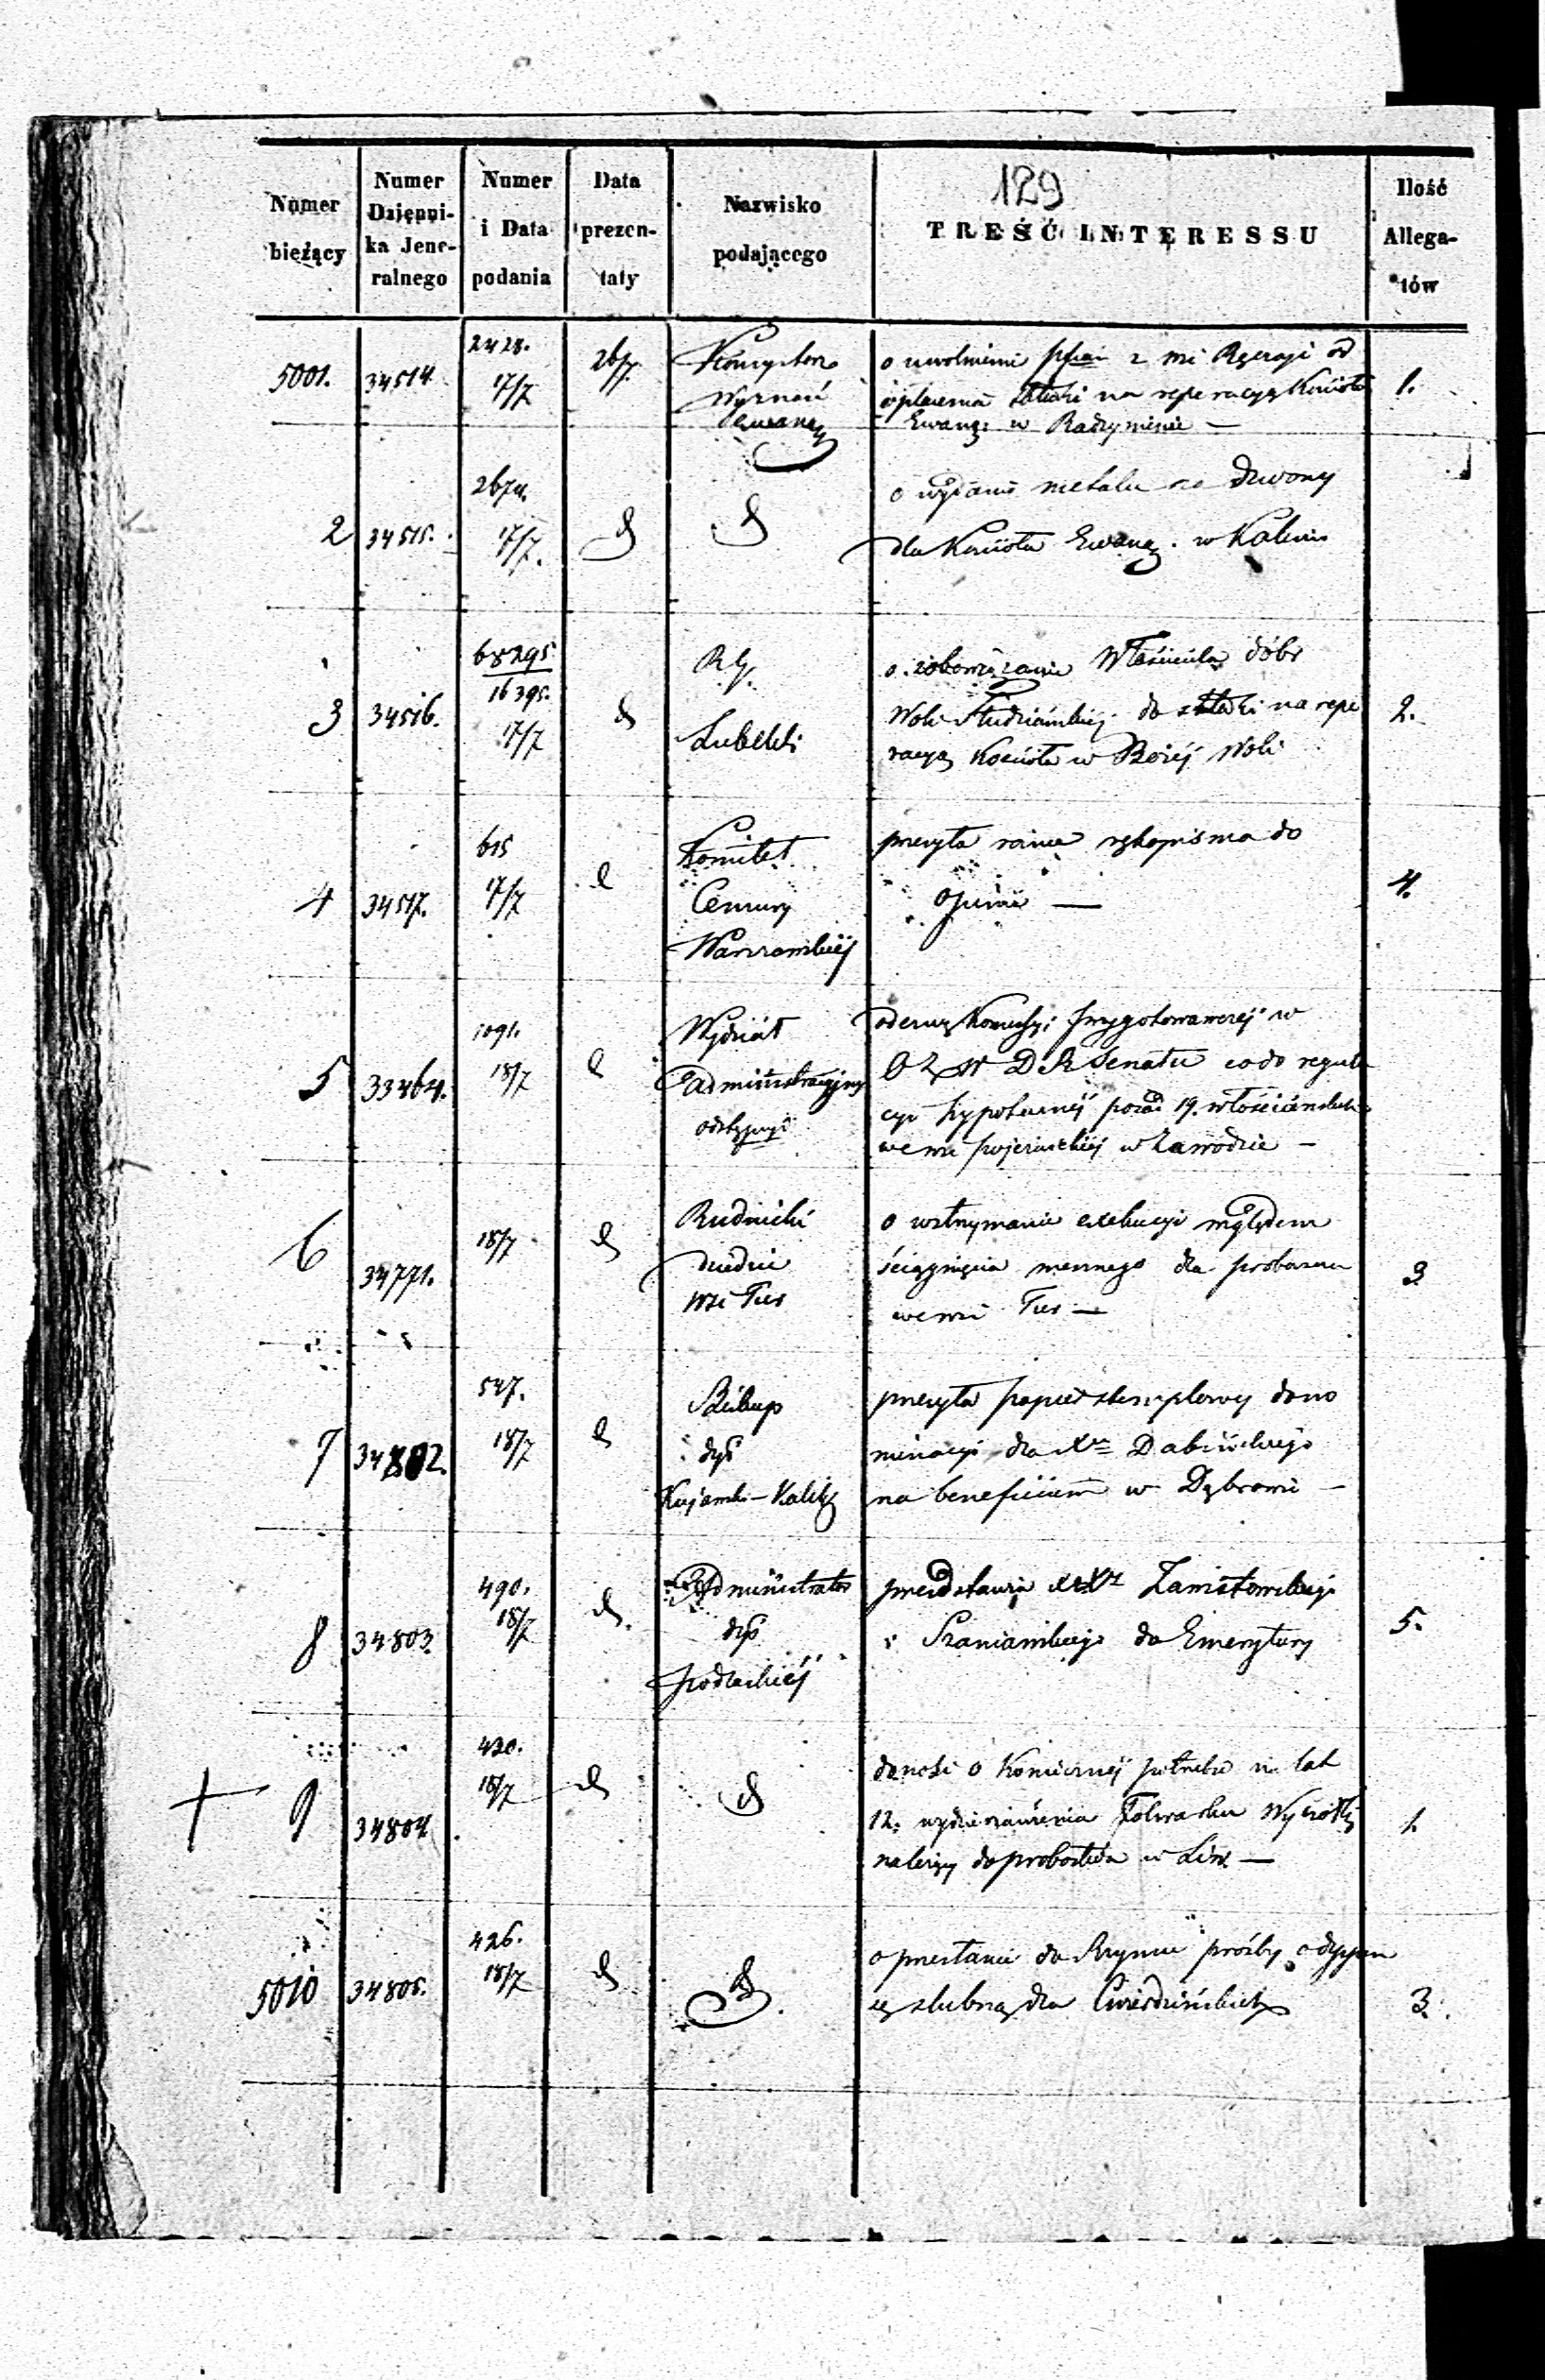 129
Numer bieżący
Numer Dziennika Jeneralnego
Numer i Data podania
Data prezentaty
Nazwisko podającego
TREŚĆ INTERESSU
Ilość Allegatów
5001. 34514 2428. 17/7 26/7. Konsystorz
Wyznań
Ewang
o uwolnienie z wsi od
opłacenia składki na reperacyą Kościoła
Ewang: w Radzyminie —
1.
2 34515. 2674. 17/7. d d
o wydanie metalu na dzwony
dla Kościoła Ewang. w Kaliszu
3 34516. 68295 16395. 17/7 d R. G.
Lubelski
o zobowiązanie Właściciela dóbr
Woli Studziańskiej do składki na repe
racyą Kościoła w Bożej Woli
2.
4 34517. 615 17/7 d Komitet
Cenzury
Warszawskiej
przesyła rękopisma do
opinii —
4.
5 33464. 1091. 18/7 d Wydział
administracyjny
odstępuje
odezwę Komissyi przygotowawczej w
D R Senatu co do regula
cyi hypotecznej posad 19. włościańskich
we wsi pojezuickiej w Zawodzie —
6 34771. 18/7 d Rudnicki
dziedzic
wsi Tur
o wstrzymanie exekucyi względem
ściągnięcia mesznego dla proboszcza
we wsi Tur —
3
7 34802. 547. 18/7 d Biskup
dyć
Kujawsko-Kalisk
przesyła papier stemplowy do no
minacyi dla Xa
na beneficium w Dąbrowie —
8 34803 490. 18/7 d. Administrator
dyć
podlaskiej
przedstawia XXży
i Szaniawskiego do Emerytury
5.
9 34804. 420. 18/7 d d
donosi o koniecznej potrzebie na lat
12. wydzierżawienia Folwarku
należy do probostwa w Liw —
1.
5010 34805. 426. 18/7 d d.
o przesłanie do Rzymu prośby o dyspen
sę ślubną dla Ćwierdzińskich
3.